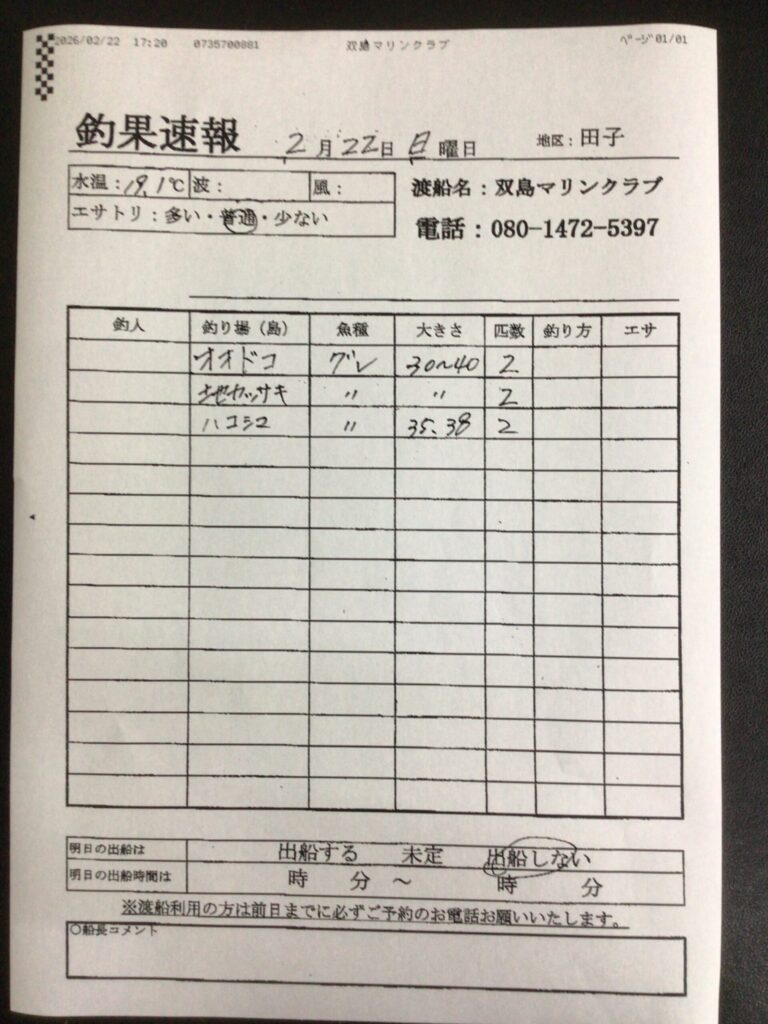 2026/02/22 17:20 0735700881 双島マリンクラブ ページ 01/01
釣果速報 2月22日 日曜日 地区：田子
水温：19.1℃ 波： 風：
エサトリ：多い・普通・少ない
渡船名：双島マリンクラブ
電話：080-1472-5397
釣人 釣り場（島） 魚種 大きさ 匹数 釣り方 エサ
オオドコ グレ 30〜40 2
地カッサキ 〃 〃 2
ハコシコ 〃 35、38 2
明日の出船は 出船する 未定 出船しない
明日の出船時間は 時 分 〜 時 分
※渡船利用の方は前日までに必ずご予約のお電話お願いいたします。
○船長コメント